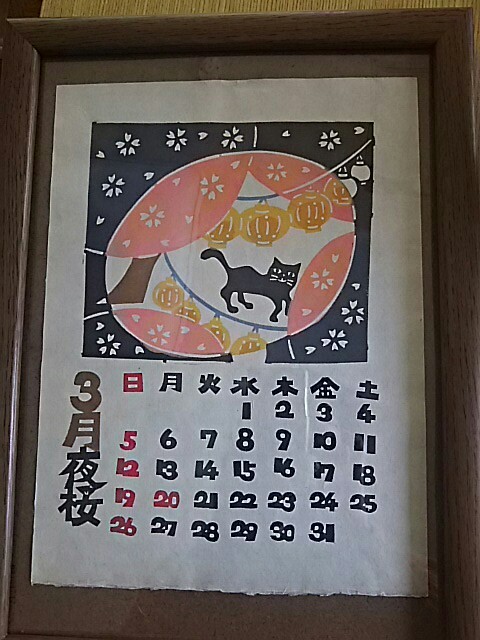 3月夜桜
日 月 火 水 木 金 土
1 2 3 4
5 6 7 8 9 10 11
12 13 14 15 16 17 18
19 20 21 22 23 24 25
26 27 28 29 30 31